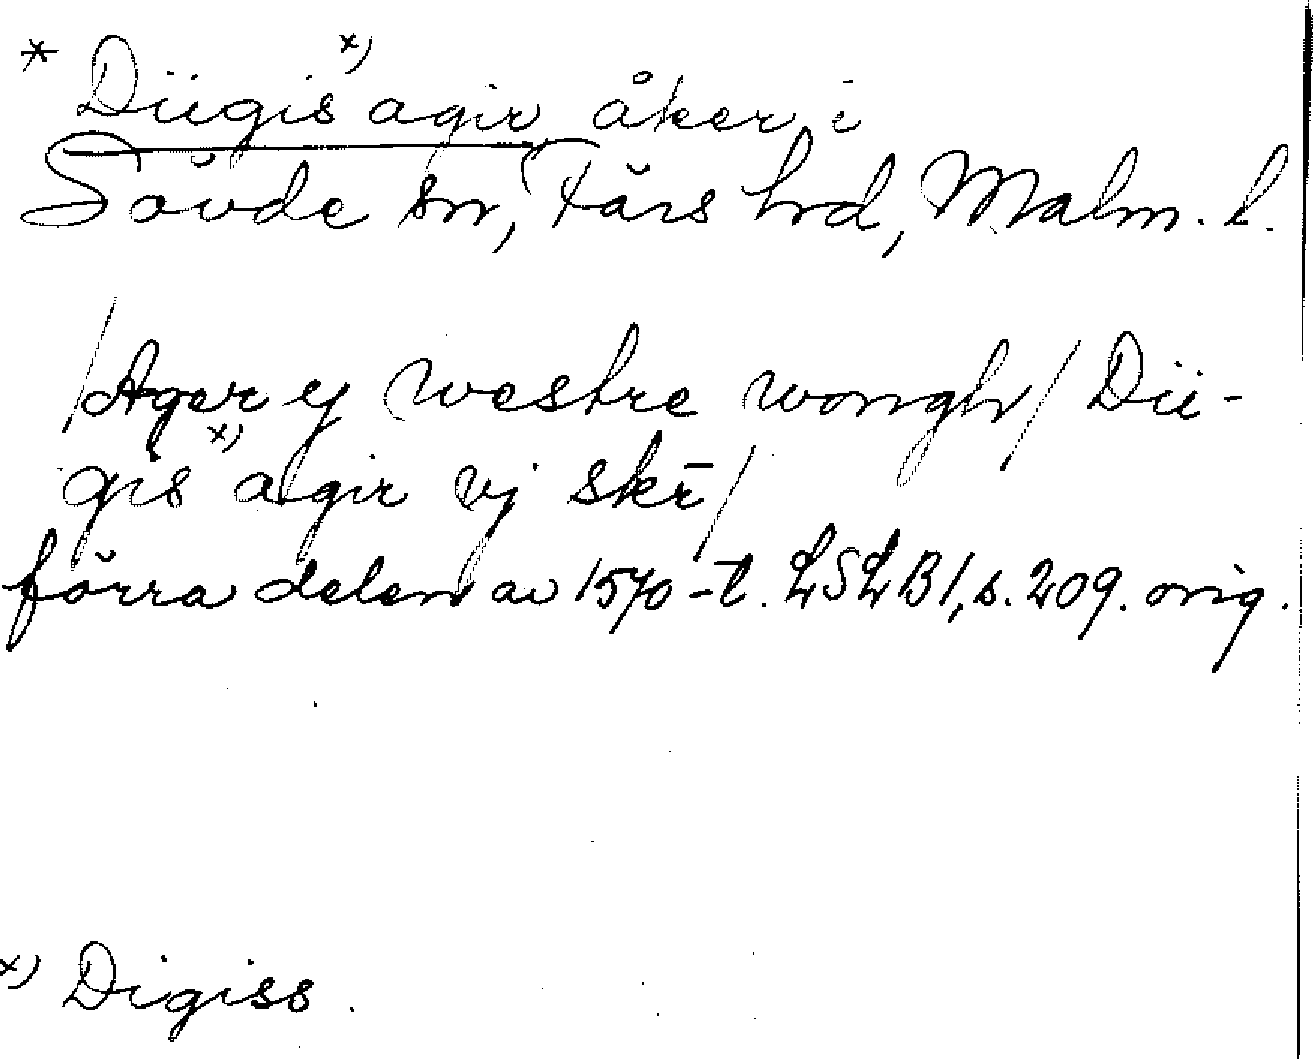 * Diigis x) agir, åker i
Sövde sn, Färs hrd, Malm. l.
/Ager ij westre wongh/ Dii-
gis x) agir vj skr̄/
förra delen av 1570-t. LSLB1, s. 209. orig.
x) Digiss.